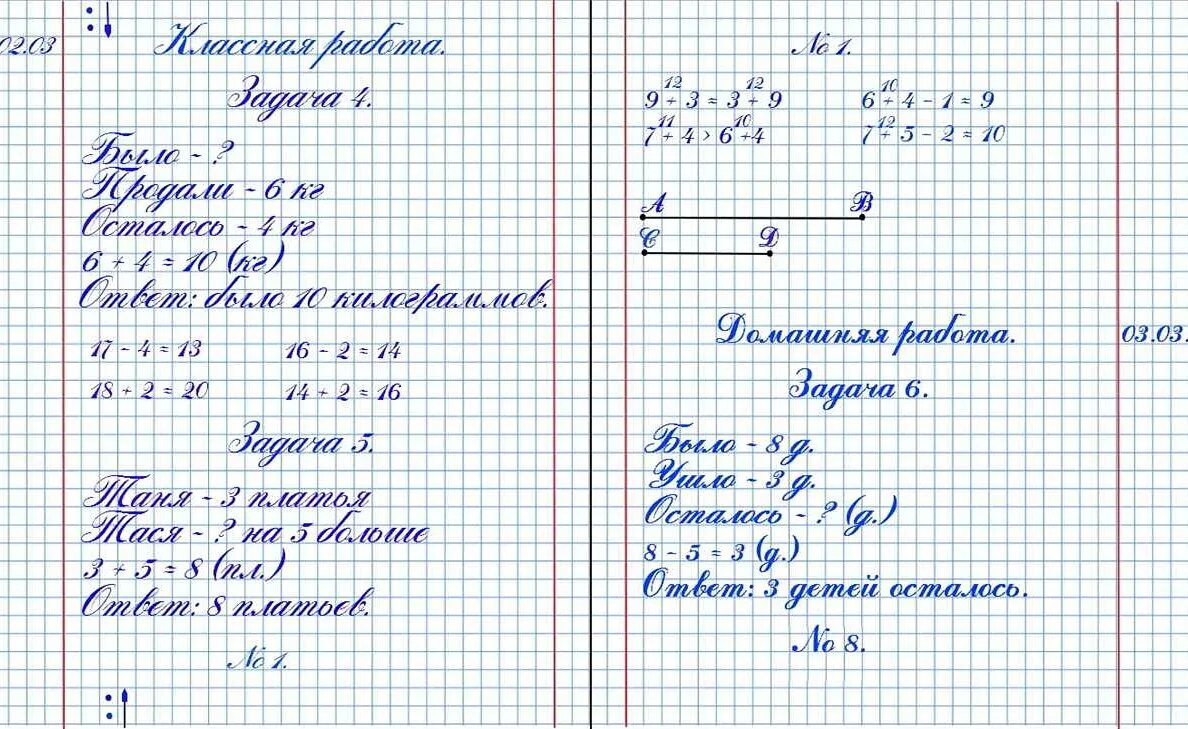 02.03
Классная работа.
Задача 4.
Было - ?
Продали - 6 кг
Осталось - 4 кг
6 + 4 = 10 (кг)
Ответ: было 10 килограммов.
17 - 4 = 13 16 - 2 = 14
18 + 2 = 20 14 + 2 = 16
Задача 5.
Таня - 3 платья
Тася - ? на 5 больше
3 + 5 = 8 (пл.)
Ответ: 8 платьев.
№ 1.
№ 1.
12 12 10
9 + 3 = 3 + 9 6 + 4 - 1 = 9
11 10 12
7 + 4 > 6 + 4 7 + 5 - 2 = 10
A B
C D
Домашняя работа.
03.03.
Задача 6.
Было - 8 д.
Ушло - 3 д.
Осталось - ? (д.)
8 - 5 = 3 (д.)
Ответ: 3 детей осталось.
№ 8.